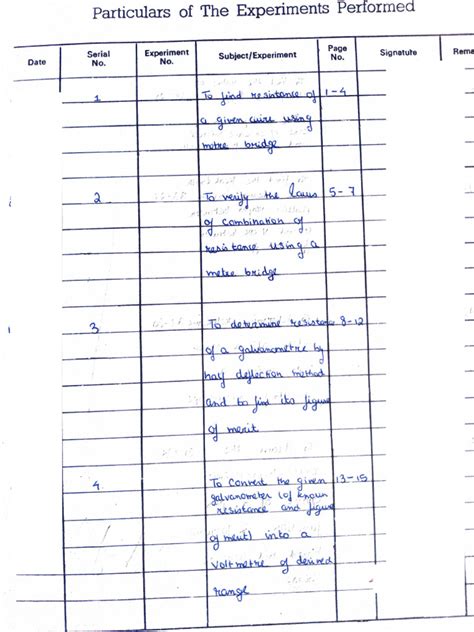 Particulars of The Experiments Performed
Date Serial No. Experiment No. Subject/Experiment Page No. Signature Rema
1 To find resistance of 1-4
a given wire using
metre bridge
2 To verify the laws 5-7
of combination of
resistance using a
metre bridge
3 To determine resistance 8-12
of a galvanometre by
half deflection method
and to find its figure
of merit
4 To Convert the given 13-15
galvanometer (of known
resistance and figure
of merit) into a
voltmetre of desired
range